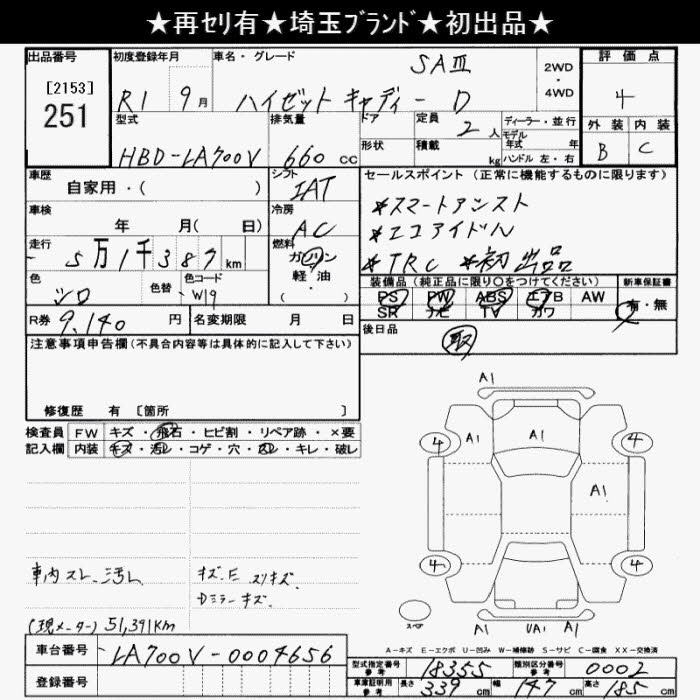 ★再セリ有★埼玉ブランド★初出品★
出品番号
[2153]
251
初度登録年月
R1 9月
車名・グレード
SAⅢ
ハイゼットキャディー D
2WD
・
4WD
評価点
4
外装 内装
B C
型式
HBD-LA700V
排気量
660 cc
ドア
形状
定員
2 人
積載
kg
ディーラー・並行
モデル
年式 年
ハンドル 左・右
車歴
自家用・( )
シフト
IAT
車検
年 月( 日)
冷房
AC
走行
5万1千387km
燃料
ガソリン
軽・油
・( )
色
シロ
色替
色コード
W19
R券 9,140 円
名変期限 月 日
セールスポイント (正常に機能するものに限ります)
*スマートアシスト
*エコアイドル
*TRC *初出品
装備品 (純正品に限り〇をつけてください)
新車保証書
PS PW ABS エアB AW
SR ナビ TV カワ
有・無
後日品
取
注意事項申告欄(不具合内容等は具体的に記入して下さい)
修復歴 有 [箇所 ]
検査員
記入欄
FW キズ・飛石・ヒビ割・リペア跡・×要
内装 キズ・汚レ・コゲ・穴・スレ・キレ・破レ
車内スレ、汚レ
キズ、E スリキズ
Dミラーキズ
(現メーター) 51,391Km
A1
4 A1 A1 4
A1
4 4
スペア
A1 UA1 A1
A-キズ E-エクボ U-凹み W-補修跡 S-サビ C-腐食 XX-交換済
車台番号 LA700V-0004656
登録番号
型式指定番号
参考
18355
類別区分番号
参考
0002
車庫証明用
参考
長さ 339 cm
幅 147 cm
高さ 185 cm